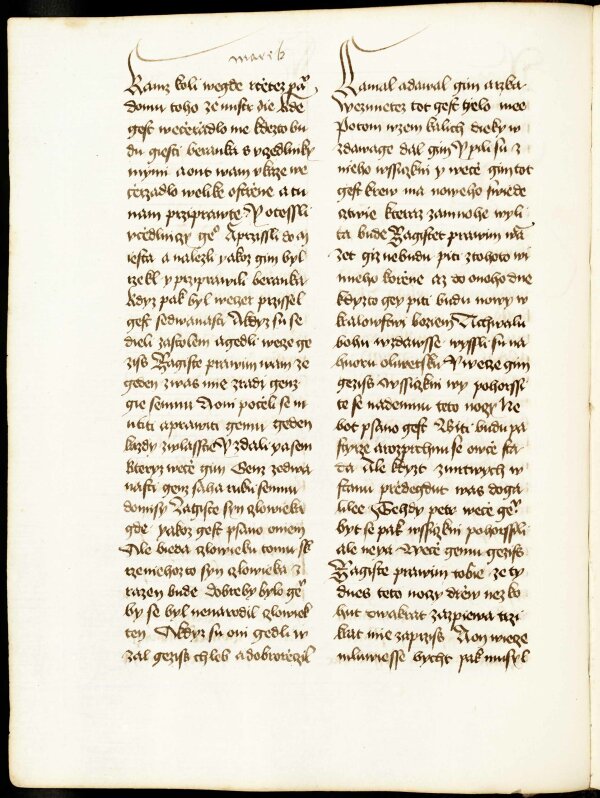 marek
Kamz koli wegde rcetez pa
domu toho ze mistr die kde
gest weczerzadlo me kdezto bu
du giesti beranka s vczedlniky
mymi a on wam vkaze we
czerzadlo welike ostrene a tu
nam prziprawte Y otessli
vczedlniczy geo A przissli do m
iesta a nalezli yakoz gim byl
rzekl y przyprawili beranka
kdyz pak byl weczer przissel
gest se dwanasti A kdyz su se
dieli za stolem a gedli wece ge
zis Zagiste prawim wam ze
geden z was mie zradi genz
gie se mnu A oni poceli se m
utiti a prawiti gemu geden
kazdy zwlasscie Y zdali ya sem
kteryz wece gim Genz ze dwa
nasti genz saha ruku se mnu
do misy Zagiste syn czlowieka
gde yakoz gest psano o niem
Ale bieda czlowieku tomu sk
rze niehozto syn czlowieka z
razen bude Dobre by bylo geo
by se byl nenarodil czlowiek
ten A kdyz su oni gedli w
zal gezis chleb a dobrorzeczil
Lamal a dawal gim a rzka
Wezmietez tot gest tielo me
Potom wzem kalich dieky w
zdawage dal gim Y pili su z
nieho wssiczkni y wece gim tot
gest krew ma noweho swiede
cztwie kteraz za mnohe wyli
ta bude Zagistet prawim wa
zet giz nebudu piti z tohoto wi
nneho korene az do onoho dne
kdyzto gey piti budu nowy w
kralowstwi boziem A chwalu
bohu wzdawsse wyssli su na
huoru oliwetsku Y wece gim
gezis Wssiczkni wy pohorssi
te se nade mnu teto noczy Ne
bot psano gest Biti budu pa
styrze a rozprchnu se owce sta
da Ale kdyzt z mrtwych w
stanu predegdut was do ga
lilee Tehdy petr wece geo
byt se pak wssiczkni pohorssili
ale ne ya Wece gemu gezis
Zagiste prawim tobie ze ty
dnes teto noczy drzew nez ko
hut dwakrat zazpiewa trzi
krat mie zaprzis A on wiece
mluwiesse bycht pak musyl